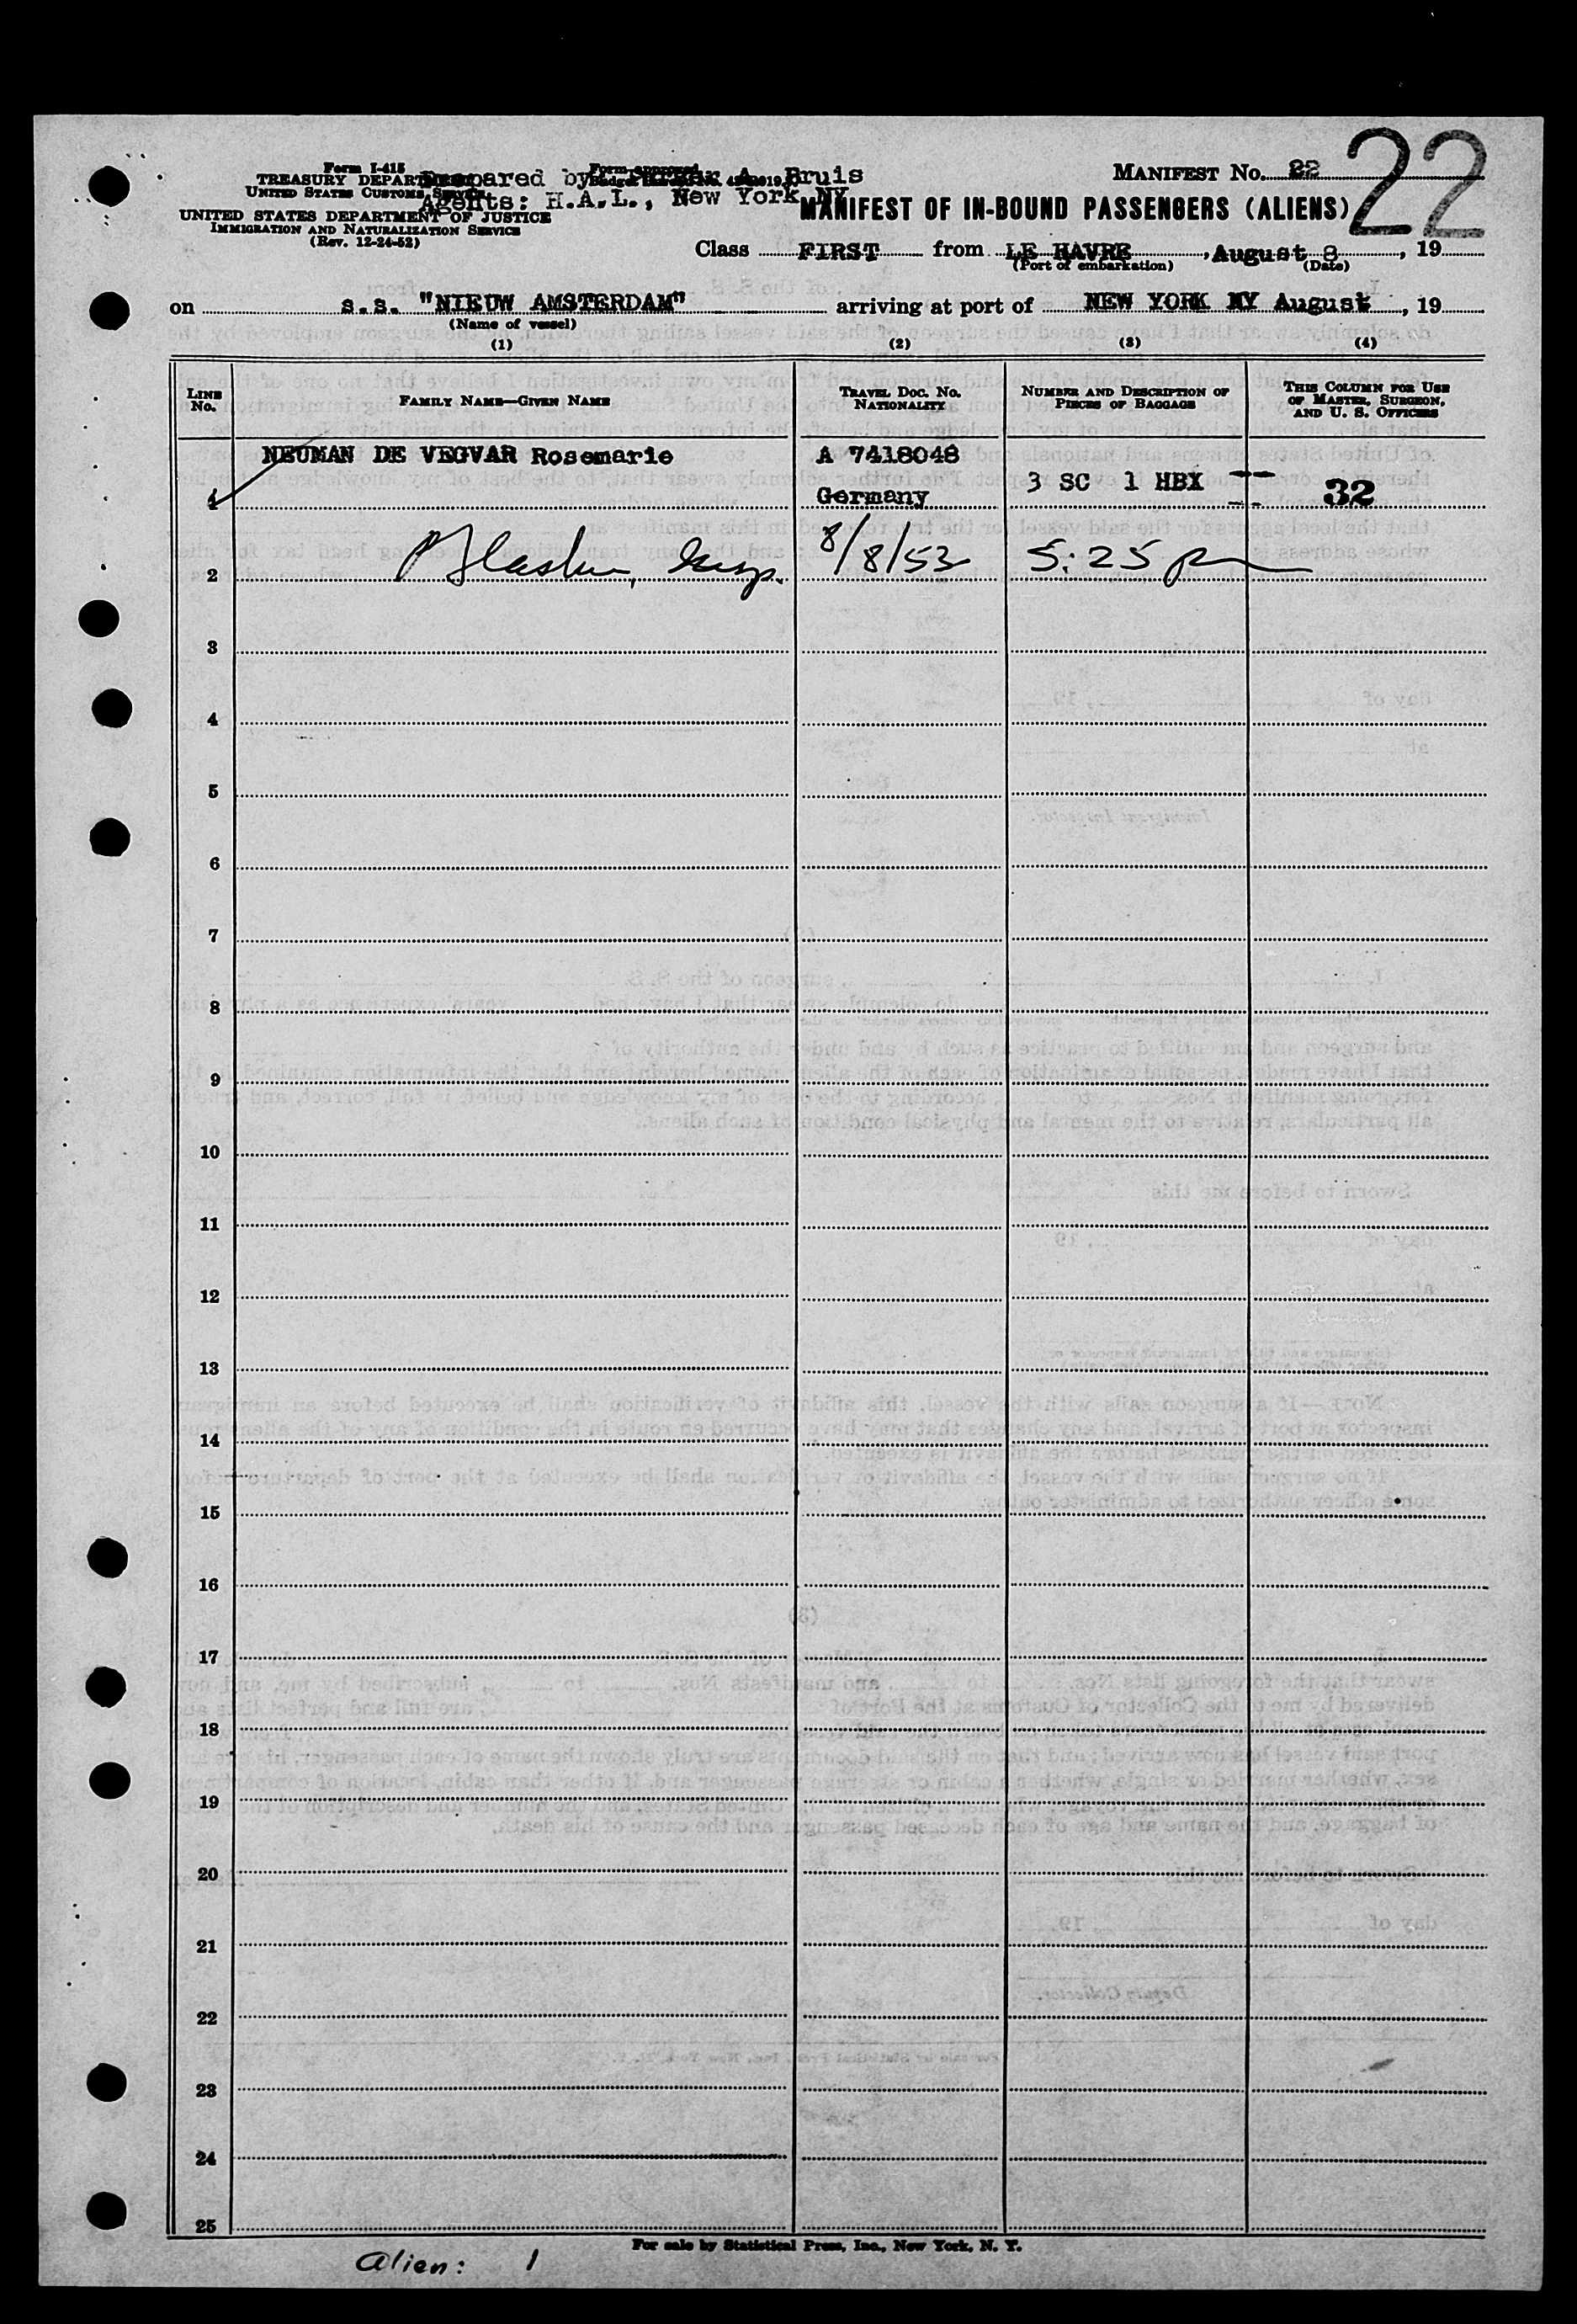 22
Form I-415
TREASURY DEPARTMENT
UNITED STATES CUSTOMS SERVICE
UNITED STATES DEPARTMENT OF JUSTICE
IMMIGRATION AND NATURALIZATION SERVICE
(Rev. 12-24-52)
Form approved
Prepared by: A. Bruis
Agents: H.A.L., New York NY
MANIFEST NO. 22
MANIFEST OF IN-BOUND PASSENGERS (ALIENS)
Class FIRST from LE HAVRE, August 8, 19
(Port of embarkation) (Date)
on s.s. "NIEUW AMSTERDAM" arriving at port of NEW YORK NY August, 19
(Name of vessel)
(1) (2) (3) (4)
LINE NO. FAMILY NAME—GIVEN NAME TRAVEL DOC. NO. NATIONALITY NUMBER AND DESCRIPTION OF PIECES OF BAGGAGE THIS COLUMN FOR USE OF MASTER, SURGEON, AND U. S. OFFICERS
NEUMAN DE VEGVAR Rosemarie A 7418048
1 Germany 3 SC 1 HBX 32
2 Insp. 8/8/53 5:25 pm
3
4
5
6
7
8
9
10
11
12
13
14
15
16
17
18
19
20
21
22
23
24
25
For sale by Statistical Press, Inc., New York, N. Y.
Alien: 1